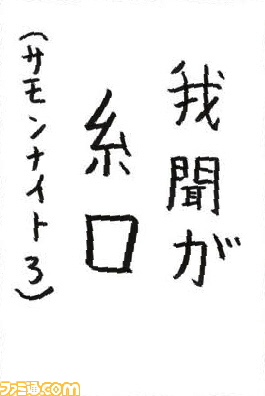 我聞が
糸口
(サモンナイト3)
ファミ通.com